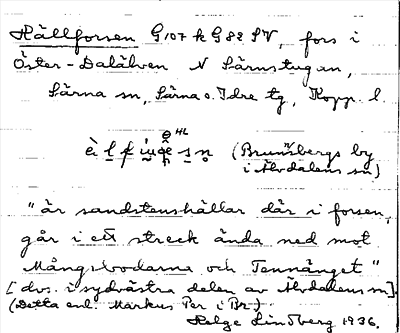 Hällforsen G107 k G82 SV, fors i
Öster-Dalälven N Särnstugan,
Särna sn, Särna o. Idre tg, Kopp. l.
(Brunnsbergs by
i Älvdalens sn)
"är sandstenshällar där i forsen,
går i ett streck ända ned mot
Mångsbodarna och Tennänget"
[dvs. i sydvästra delen av Älvdalens sn]
(Detta enl. Markus Per i Br.)
Helge Lindberg 1936.